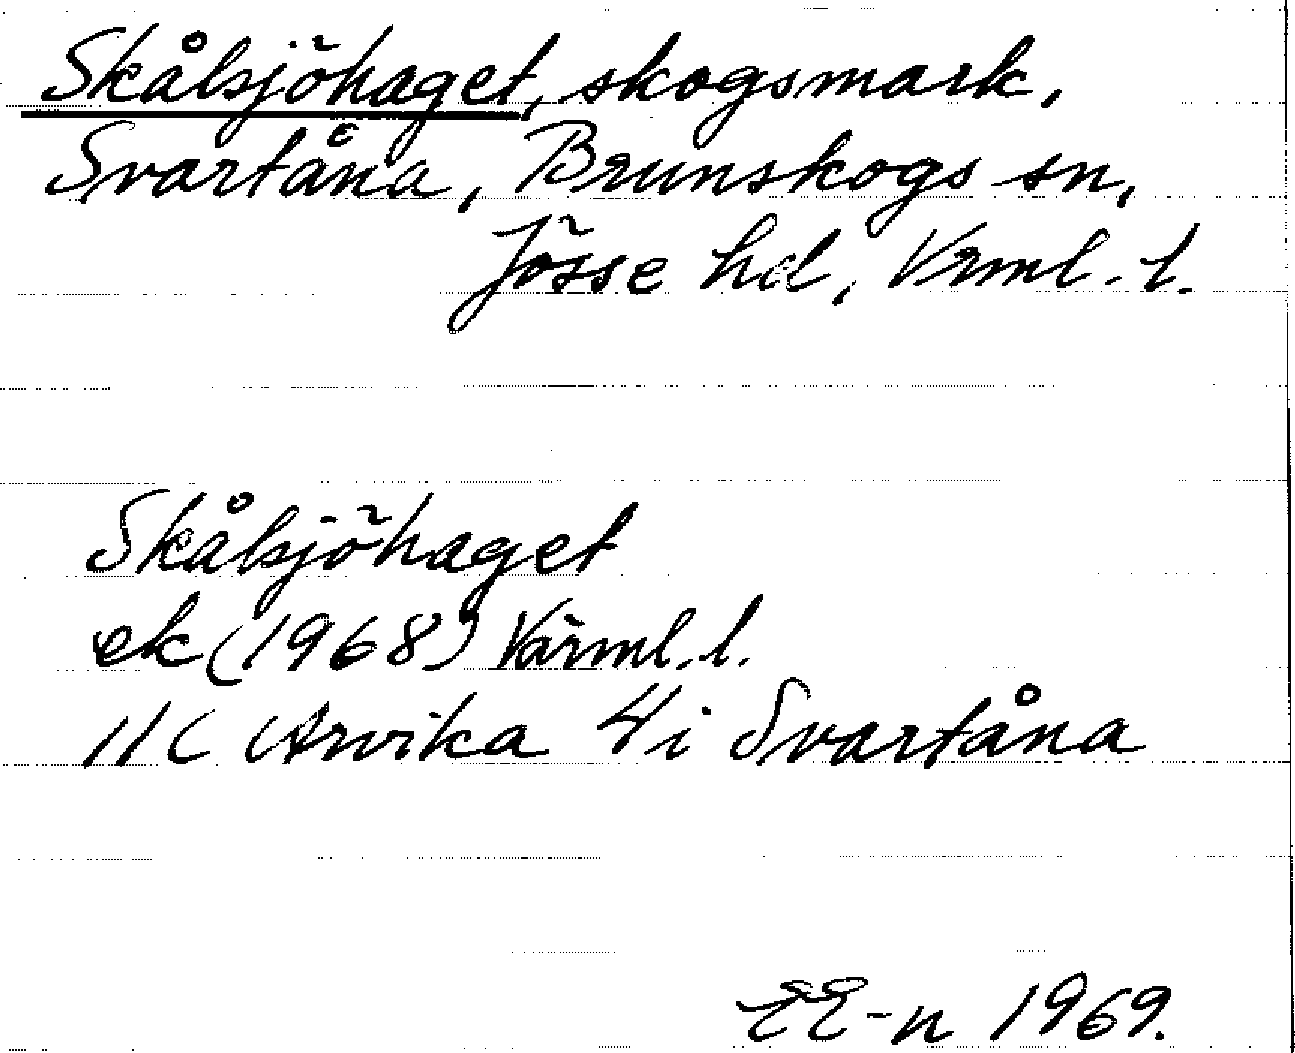 Skålsjöhaget, skogsmark,
Svartåna, Brunskogs sn,
Jösse hd, Vrml. l.
Skålsjöhaget
ek (1968) Värml. l.
11C Arvika 4i Svartåna
EE-n 1969.